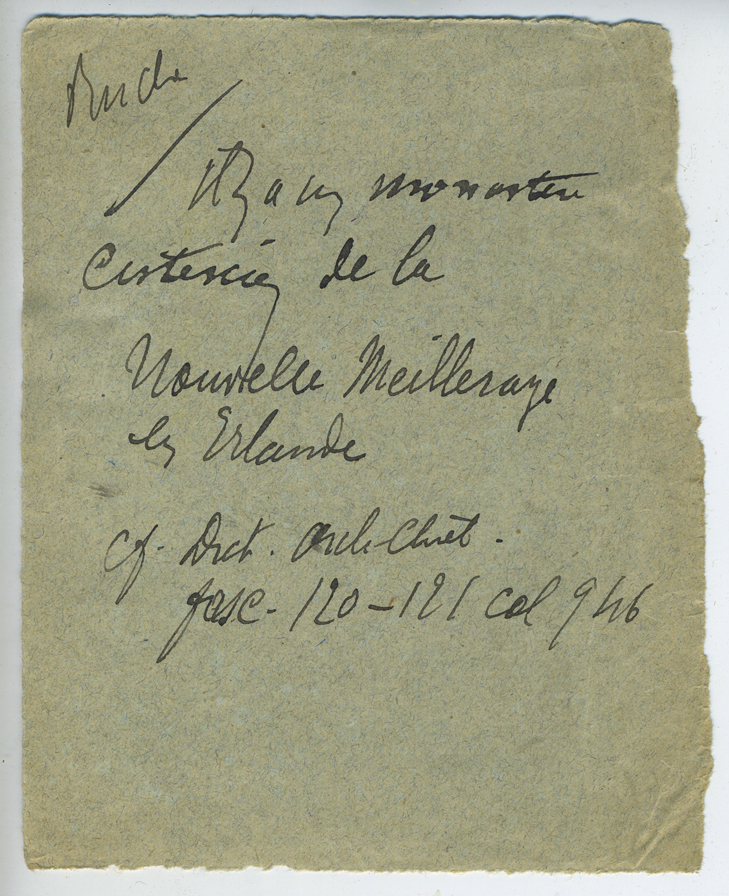 Ruche
Il y a un monastère
Cistercien de la
Nouvelle Meilleraye
en Irlande
cf. Dict. Arch. Chrét.
fasc. 120-121 col 946